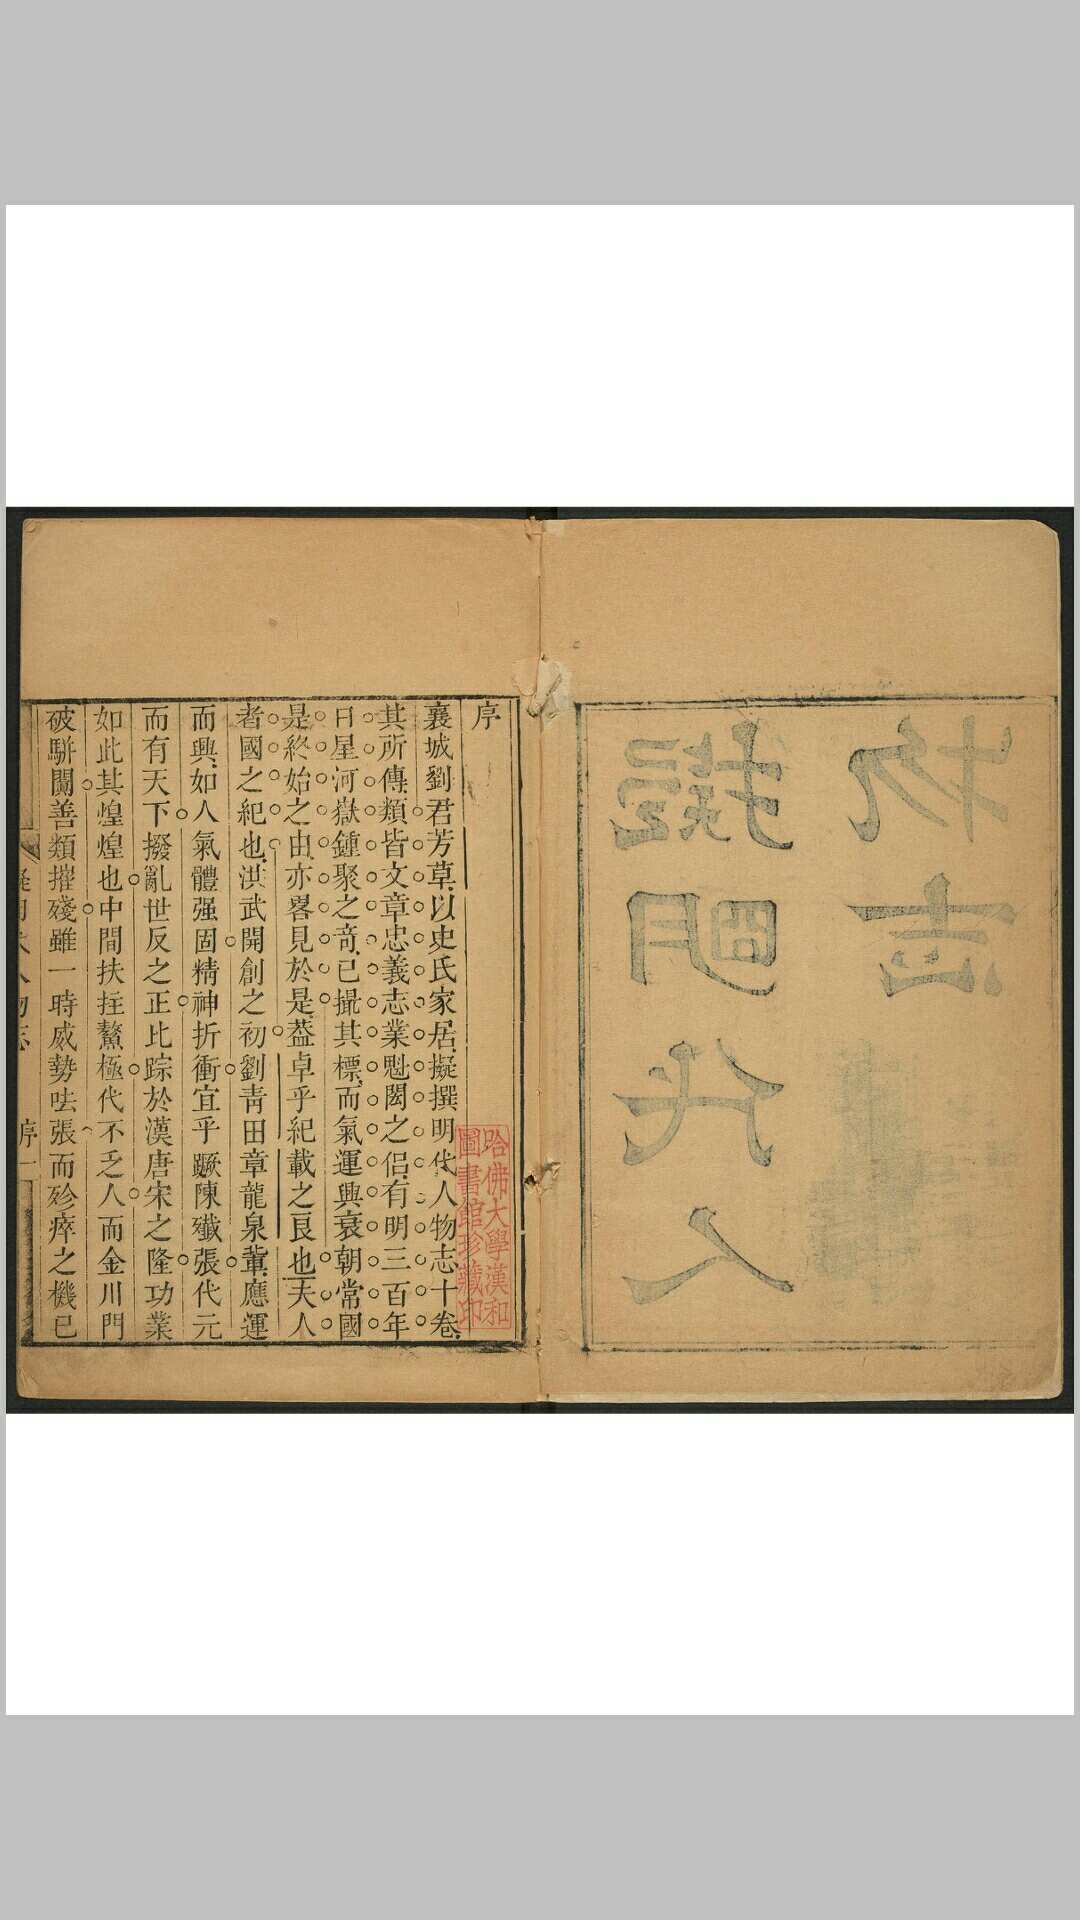 擬明代人
物志
序
襄城劉君芳草以史氏家居擬撰明代人物志十卷
其所傳類皆文章忠義志業魁閎之侶有明三百年
日星河嶽鍾聚之竒已撮其標而氣運興衰朝常國
是終始之由亦畧見於是葢卓乎紀載之良也夫人
者國之紀也洪武開創之初劉靑田章龍泉軰應運
而興如人氣體强固精神折衝宜乎蹶陳殱張代元
而有天下撥亂世反之正比踪於漢唐宋之隆功業
如此其煌煌也中間扶拄鰲極代不乏人而金川門
破駢闔善類摧殘雖一時威勢呿張而殄瘁之機已
哈佛大學漢和
圖書館珍藏印
擬明代人物志
序
一